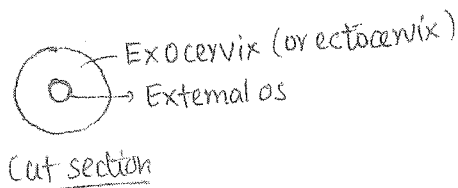 Exocervix (or ectocervix)
External os
Cut section